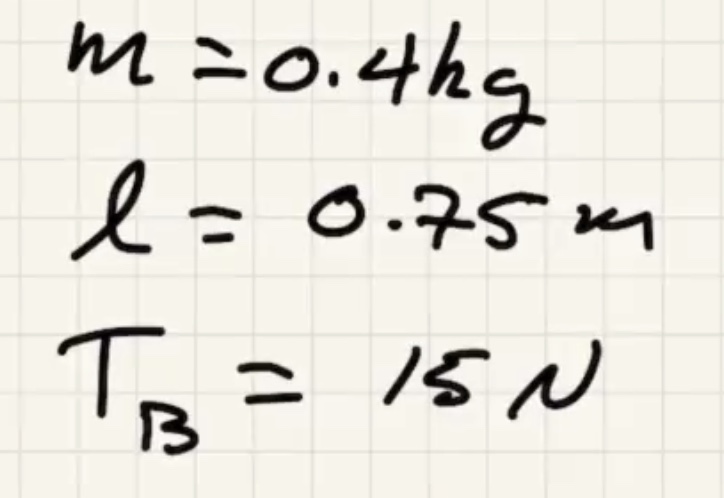 m = 0.4kg
l = 0.75 m
T_B = 15 N